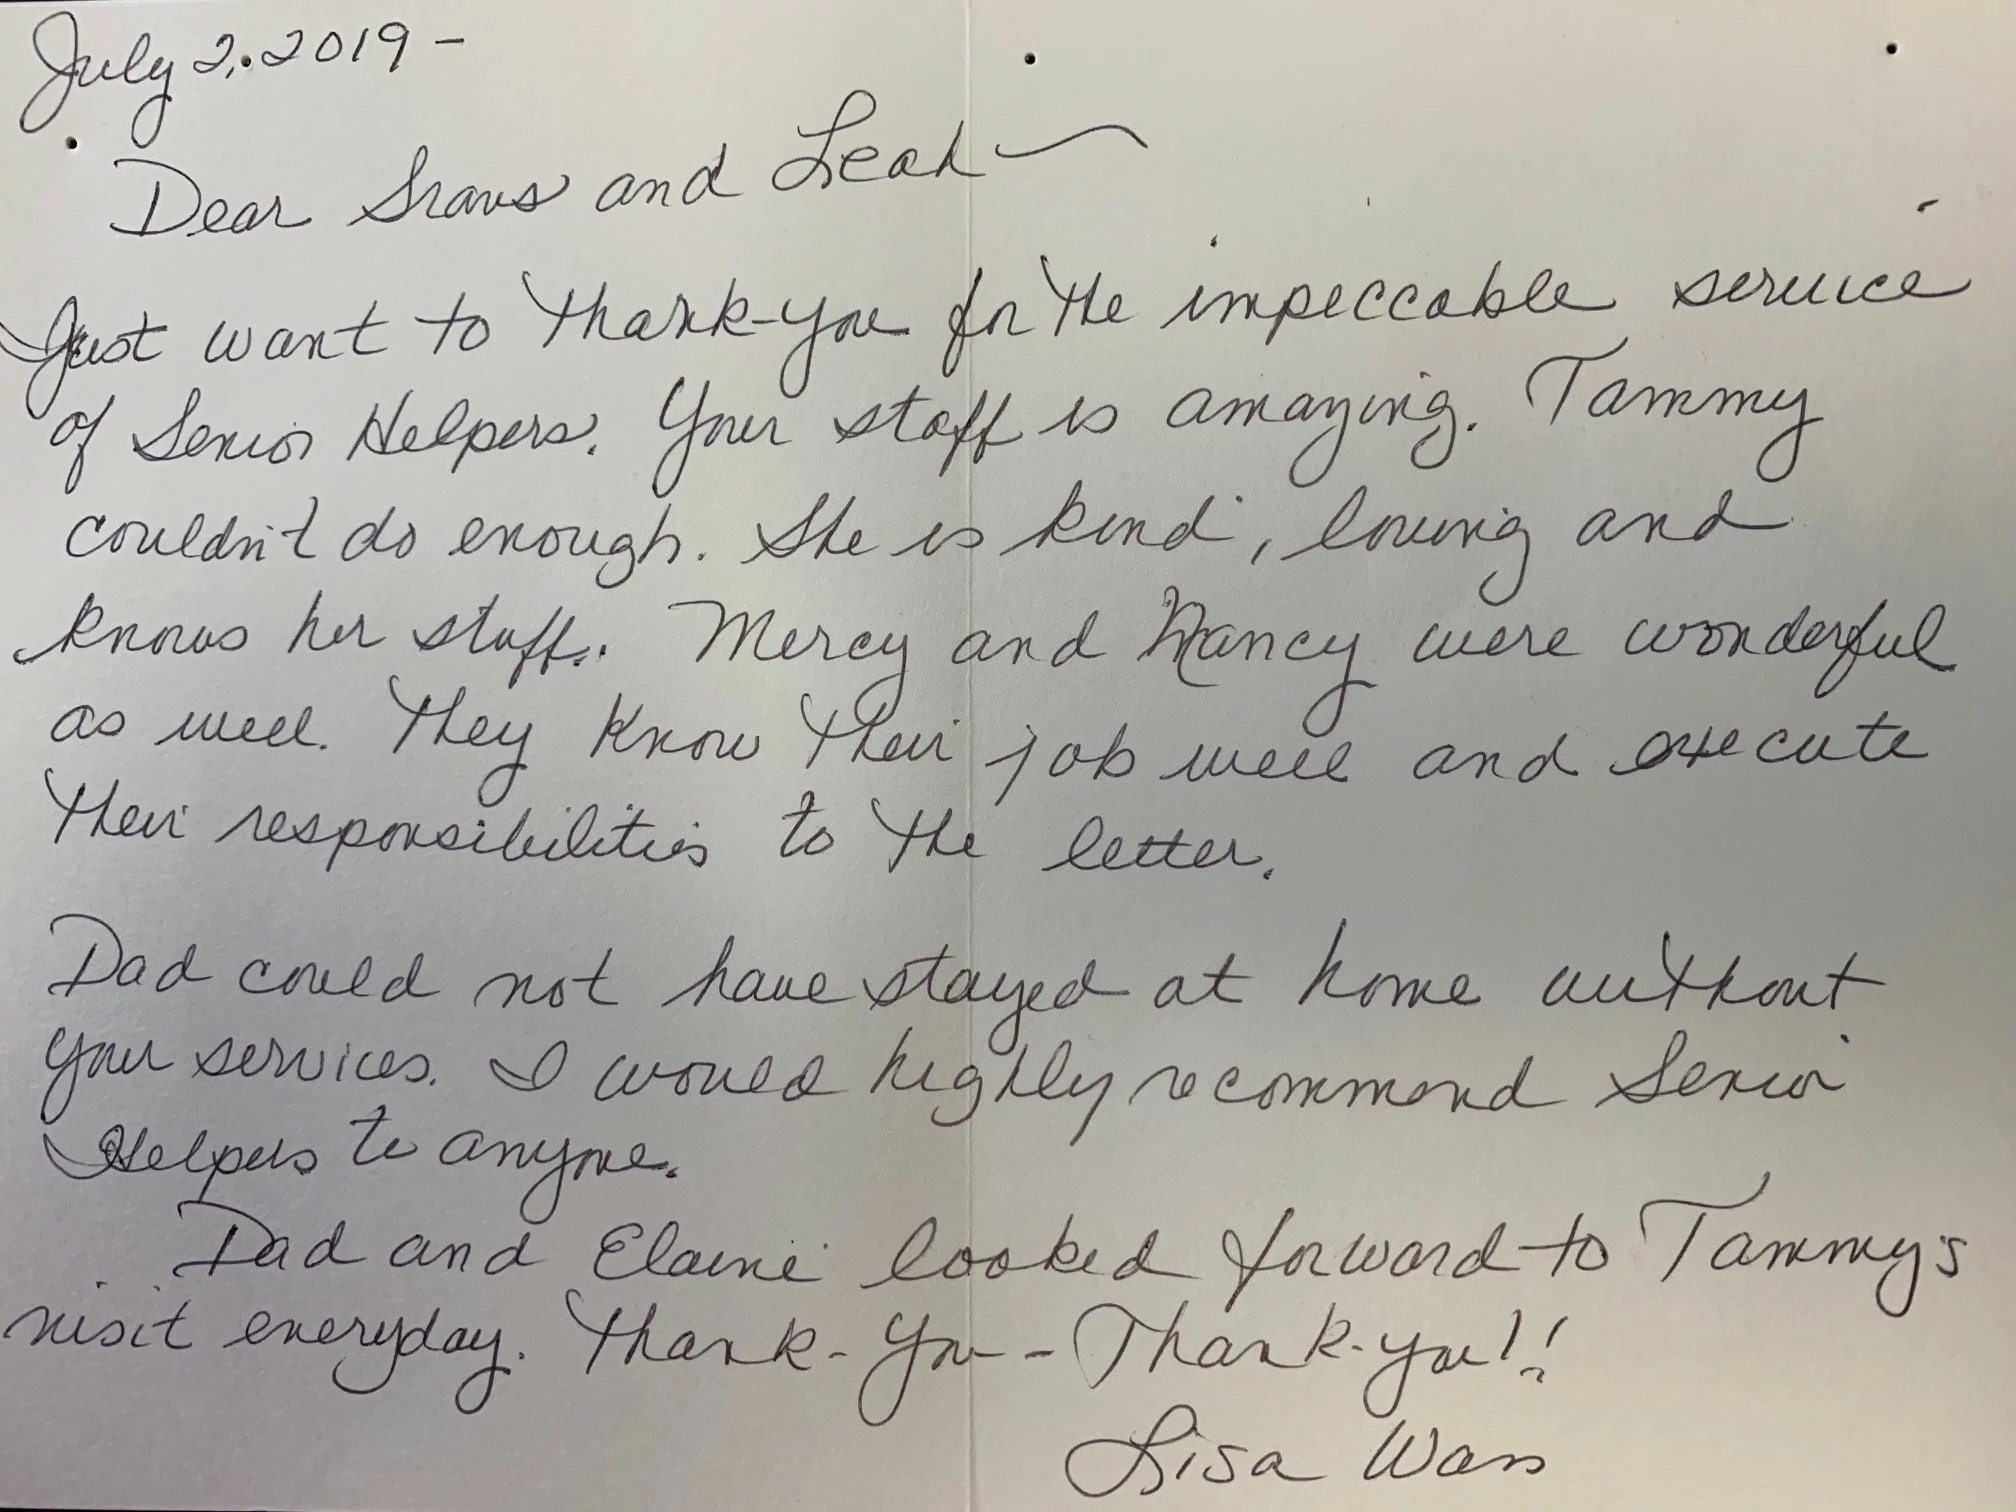 July 2, 2019 -
Dear Sravs and Leah -
Just want to thank-you for the impeccable service
of Senior Helpers. Your staff is amazing. Tammy
couldn't do enough. She is kind, loving and
knows her stuff. Mercy and Nancy were wonderful
as well. They know their job well and execute
their responsibilities to the letter.
Dad could not have stayed at home without
your services. I would highly recommend Senior
Helpers to anyone.
Dad and Elaine looked forward to Tammy's
visit everyday. Thank-you - Thank-you!!
Lisa